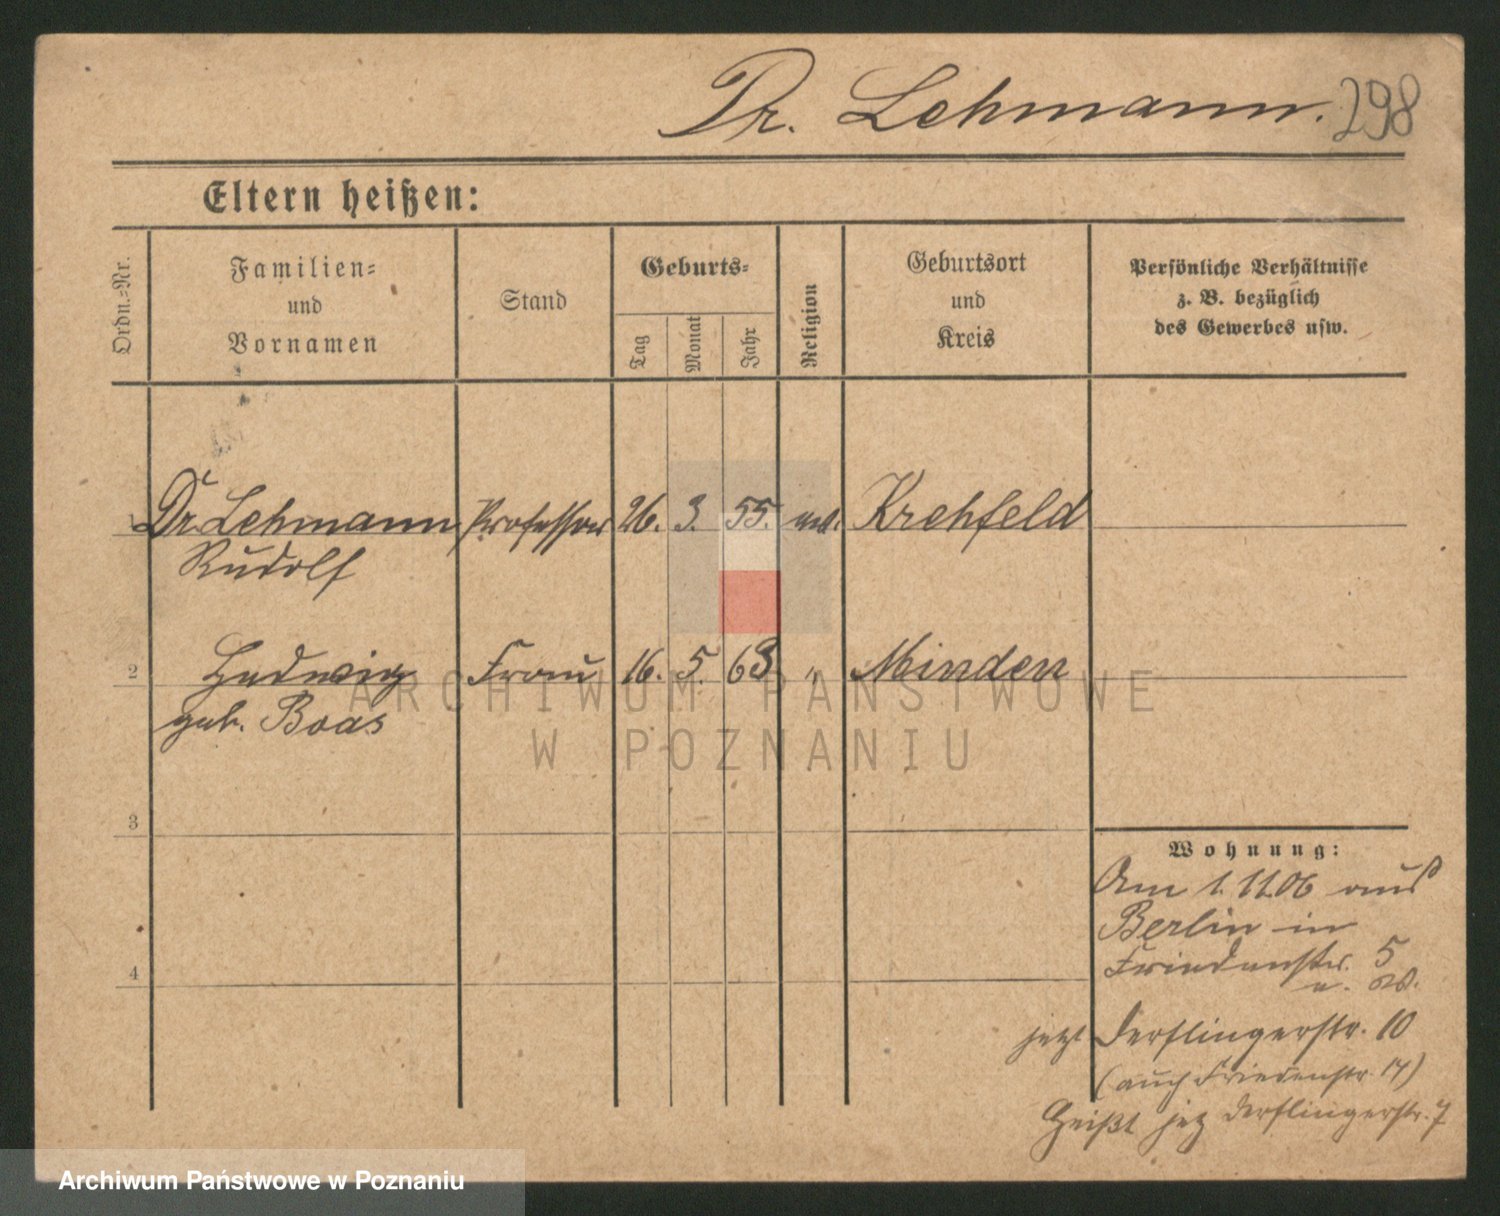 Dr. Lehmann. 298
Eltern heißen:
Ordn.-Nr.
Familien-
und
Vornamen
Stand
Geburts-
Tag
Monat
Jahr
Religion
Geburtsort
und
Kreis
Persönliche Verhältnisse
z. B. bezüglich
des Gewerbes usw.
1 Dr Lehmann Professor 26. 3. 55. Krehfeld
Rudolf
2 Hedwig Frau 16. 5. 63 " Minden
geb. Boas
ARCHIWUM PAŃSTWOWE
W POZNANIU
3
4
Wohnung:
Am 1. 11.06 aus
Berlin in
Friedenstr. 5
jetzt Derflingerstr. 10
(auch Friedenstr. 17)
Heißt jetz Derflingerstr. 7
Archiwum Państwowe w Poznaniu